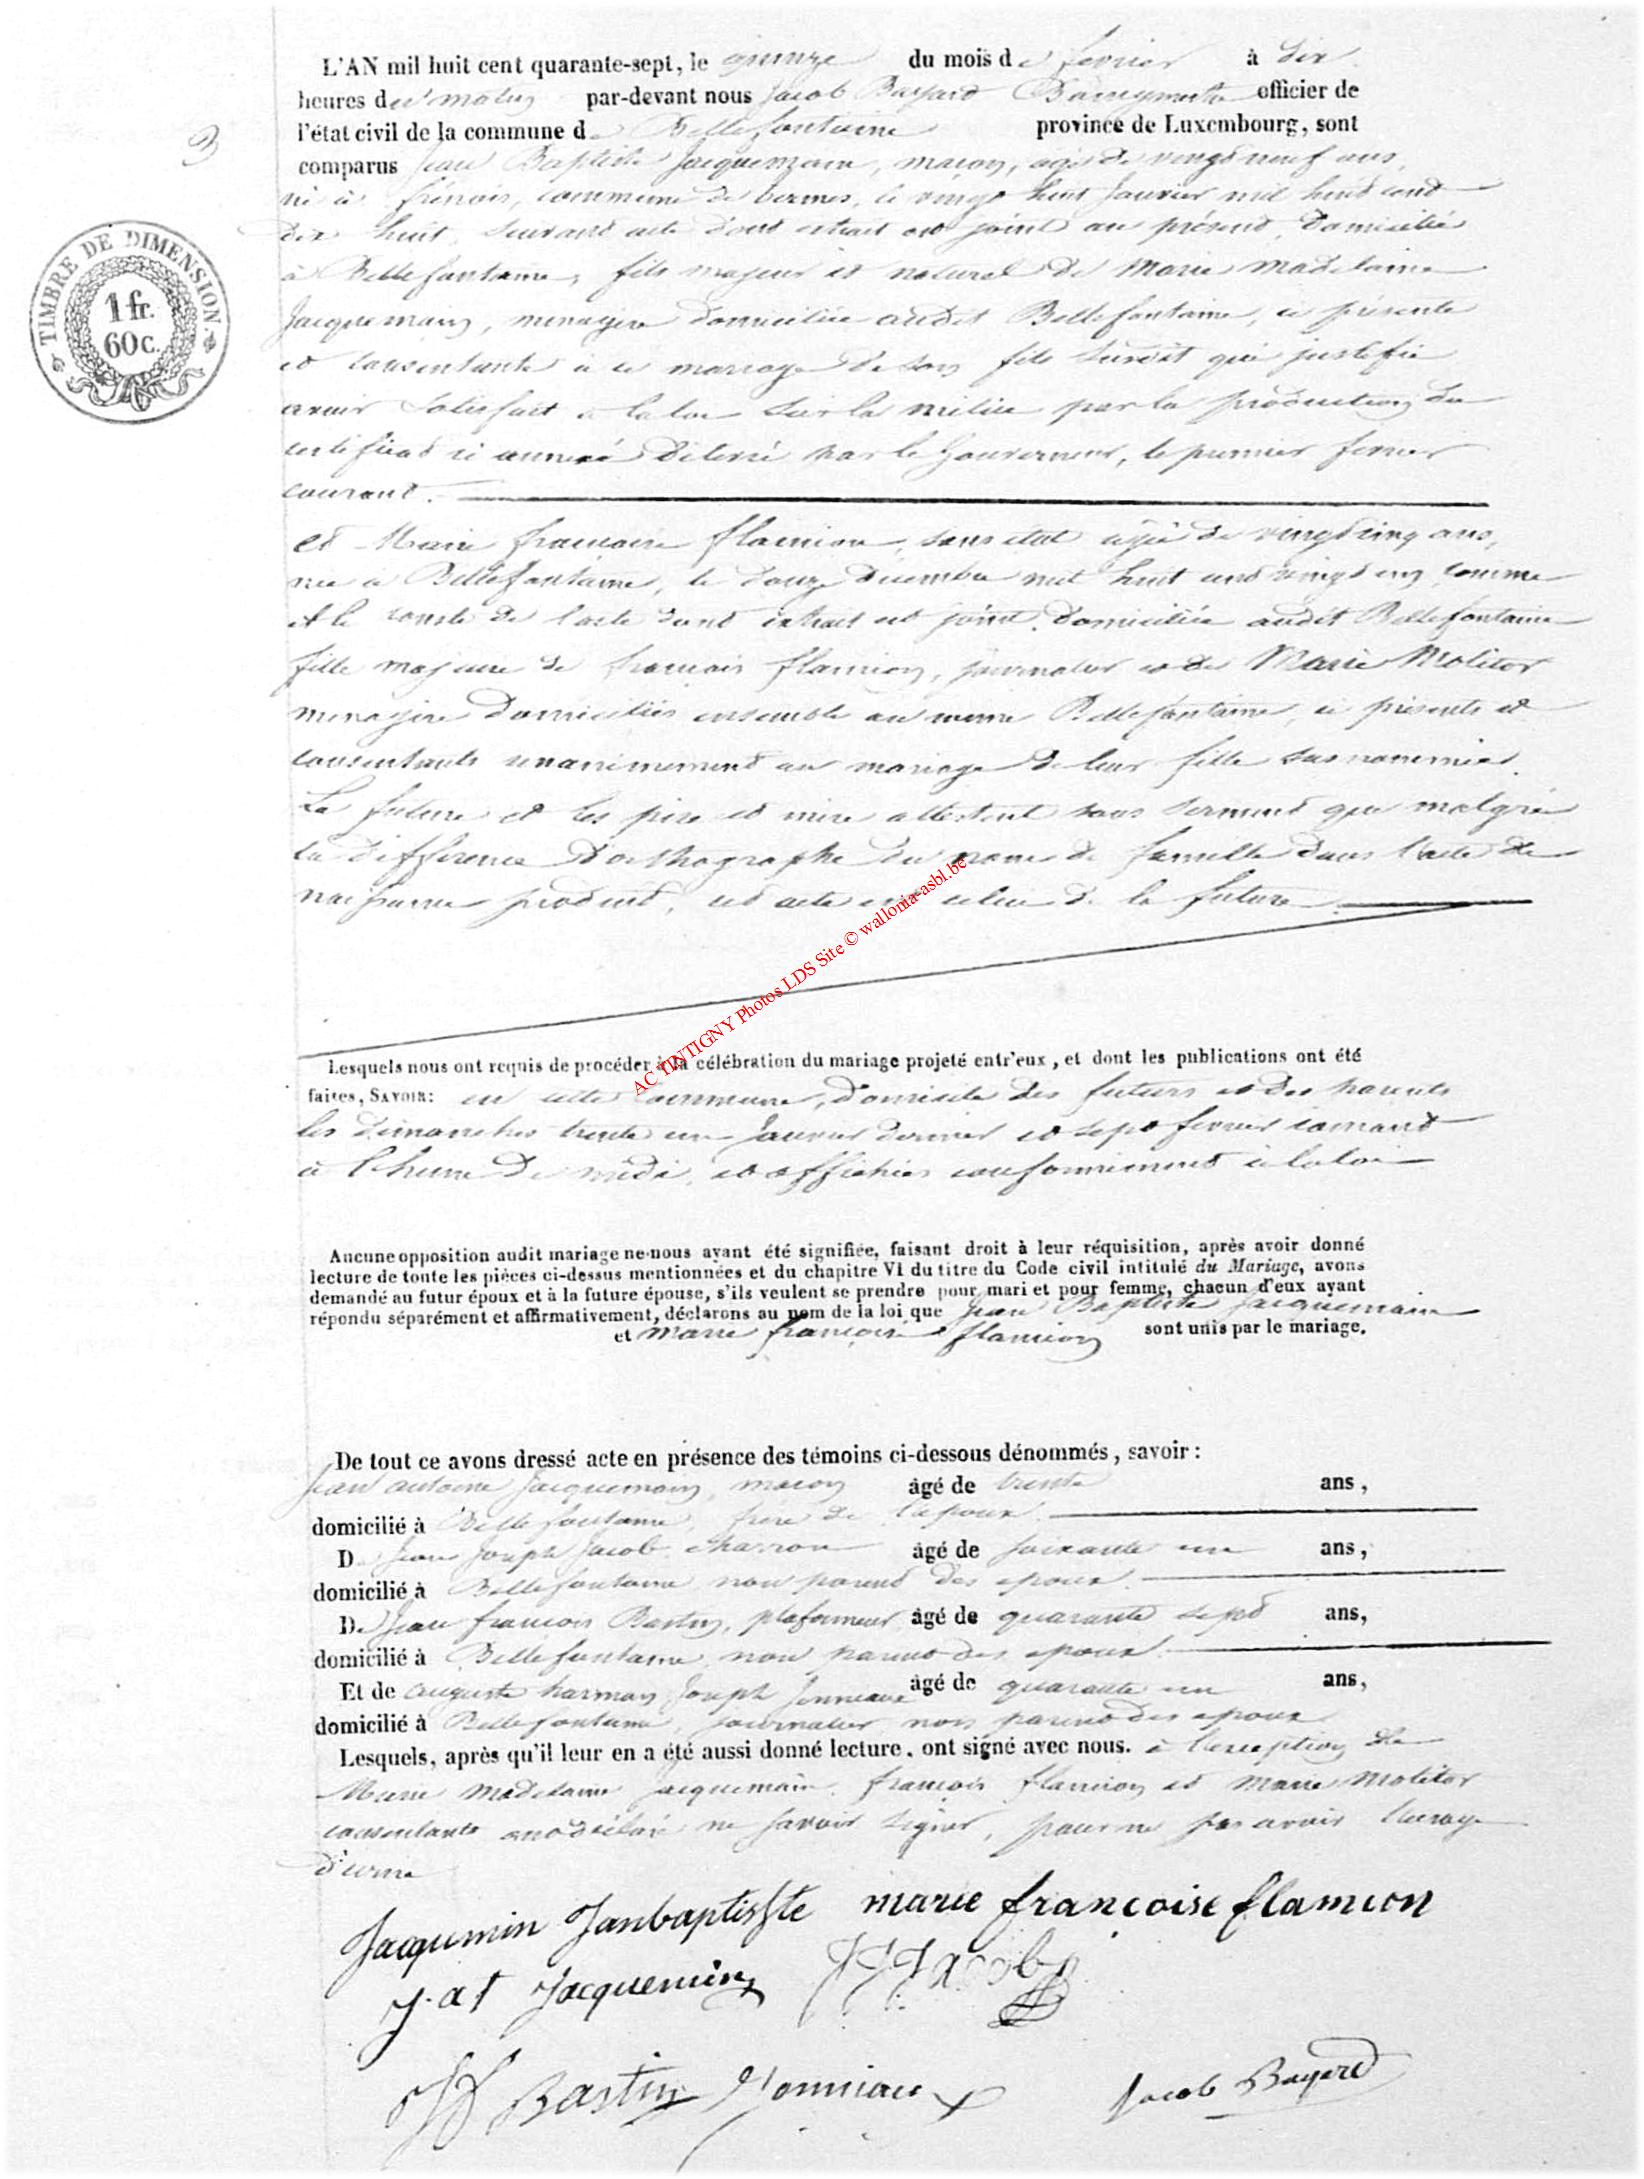 L'AN mil huit cent quarante-sept, le quinze du mois de fevrier à dix
heures du matin par-devant nous Jacob Bayard Bourgmestre officier de
l'état civil de la commune de Bellefontaine province de Luxembourg, sont
comparus Jean Baptiste Jacquemain, maçon, agé de vingt neuf ans,
né à frénois, commune de termes, le vingt huit Janvier mil huit cent
dix huit, suivant acte dont extrait est joint au présent, domicilié
à Bellefontaine, fils majeur et naturel de Marie Madelaine
Jacquemain, menagère domiciliée audit Bellefontaine, ci présente
et consentante à ce mariage de son fils susdit qui justifie
avoir satisfait à la loi sur la milice par la production du
certificat ci annexé délivré par le Gouverneur, le premier fevrier
courant.
et Marie françoise flamion, sans état agée de vingt cinq ans,
née à Bellefontaine, le douze Decembre mil huit cent vingt un comme
il conste de l'acte dont extrait est joint, domiciliée audit Bellefontaine
fille majeure de françois flamion, journalier et de Marie Molitor
menagère domiciliés ensemble au même Bellefontaine, ci présents et
consentants unanimement au mariage de leur fille susnommée.
La future et les père et mère attestent sous serment que malgré
la différence d'orthographe du nom de famille dans l'acte de
naissance produit, cet acte est celui de la future
Lesquels nous ont requis de procéder à la célébration du mariage projeté entr'eux, et dont les publications ont été
faites, SAVOIR: en cette commune, domicile des futurs et des parents
les dimanches trente un Janvier dernier et sept fevrier courant
à l'heure de midi, et affichées conformément à la loi
Aucune opposition audit mariage ne nous ayant été signifiée, faisant droit à leur réquisition, après avoir donné
lecture de toute les pièces ci-dessus mentionnées et du chapitre VI du titre du Code civil intitulé du Mariage, avons
demandé au futur époux et à la future épouse, s'ils veulent se prendre pour mari et pour femme, chacun d'eux ayant
répondu séparément et affirmativement, déclarons au nom de la loi que Jean Baptiste Jacquemain
et marie françoise flamion sont unis par le mariage.
De tout ce avons dressé acte en présence des témoins ci-dessous dénommés, savoir:
Jean antoine Jacquemain, maçon âgé de trente ans,
domicilié à Bellefontaine, frere de l'epoux.
De Jean Joseph Jacob charron âgé de soixante un ans,
domicilié à Bellefontaine non parent des epoux.
De Jean francois Bastin, plafonneur âgé de quarante sept ans,
domicilié à Bellefontaine non parent des epoux
Et de auguste harman Joseph Jonniaux âgé de quarante un ans,
domicilié à Bellefontaine, journalier non parent des epoux
Lesquels, après qu'il leur en a été aussi donné lecture, ont signé avec nous. à l'exception de
Marie Madelaine Jacquemain, françois flamion et Marie Molitor
consentants ne savoir signer, pour ne pas avoir l'usage
Jaqumin Janbaptisste marie françoise flamion
J. at Jacquemin JJ Jacob
JF Bastin Jonniaux Jacob Bayard
3
TIMBRE DE DIMENSION.
1 fr.
60 c.
AC TINTIGNY Photos LDS Site © wallonia-asbl.be